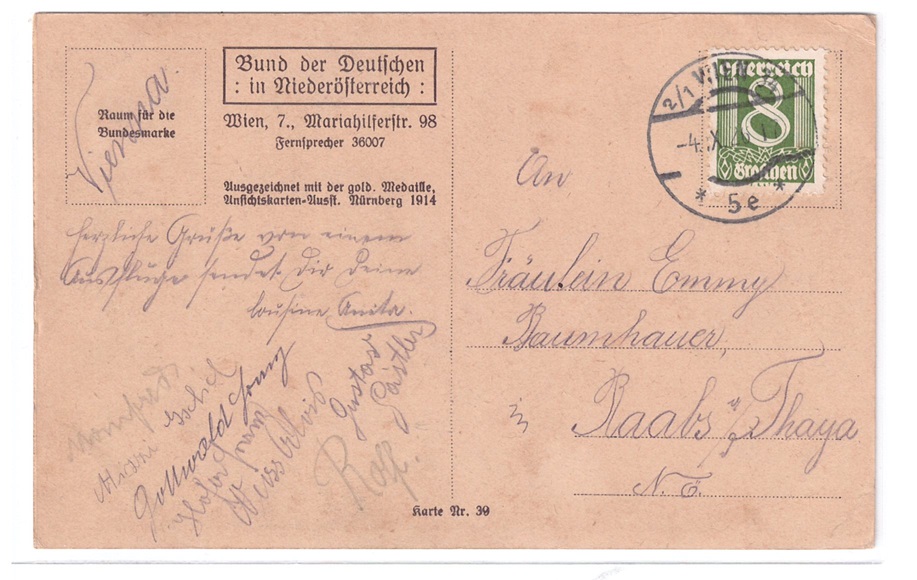 Vienna.
Raum für die
Bundesmarke
Bund der Deutschen
: in Niederösterreich :
Wien, 7., Mariahilferstr. 98
Fernsprecher 36007
Ausgezeichnet mit der gold. Medaille,
Ansichtskarten-Ausst. Nürnberg 1914
Österreich
8
Groschen
2/1 WIEN
-4. X.
* 5e *
An
Fräulein Emmy
Baumhauer,
Raabs a/ Thaya
N. Ö.
Herzliche Grüße von einem
Ausfluge sendet Dir Deine
Cousine Anita.
Manfred
Mizzi
Gottwald Franz
Hofer Franz
Weiss Alois
Gustav
Rolf.
Karte Nr. 39